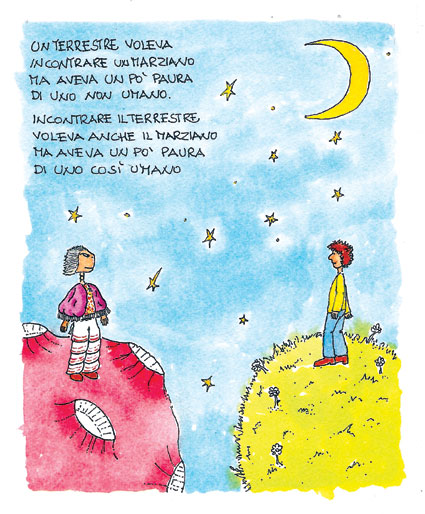 UN TERRESTRE VOLEVA
INCONTRARE UN MARZIANO
MA AVEVA UN PO' PAURA
DI UNO NON UMANO.
INCONTRARE IL TERRESTRE
VOLEVA ANCHE IL MARZIANO
MA AVEVA UN PO' PAURA
DI UNO COSÌ UMANO